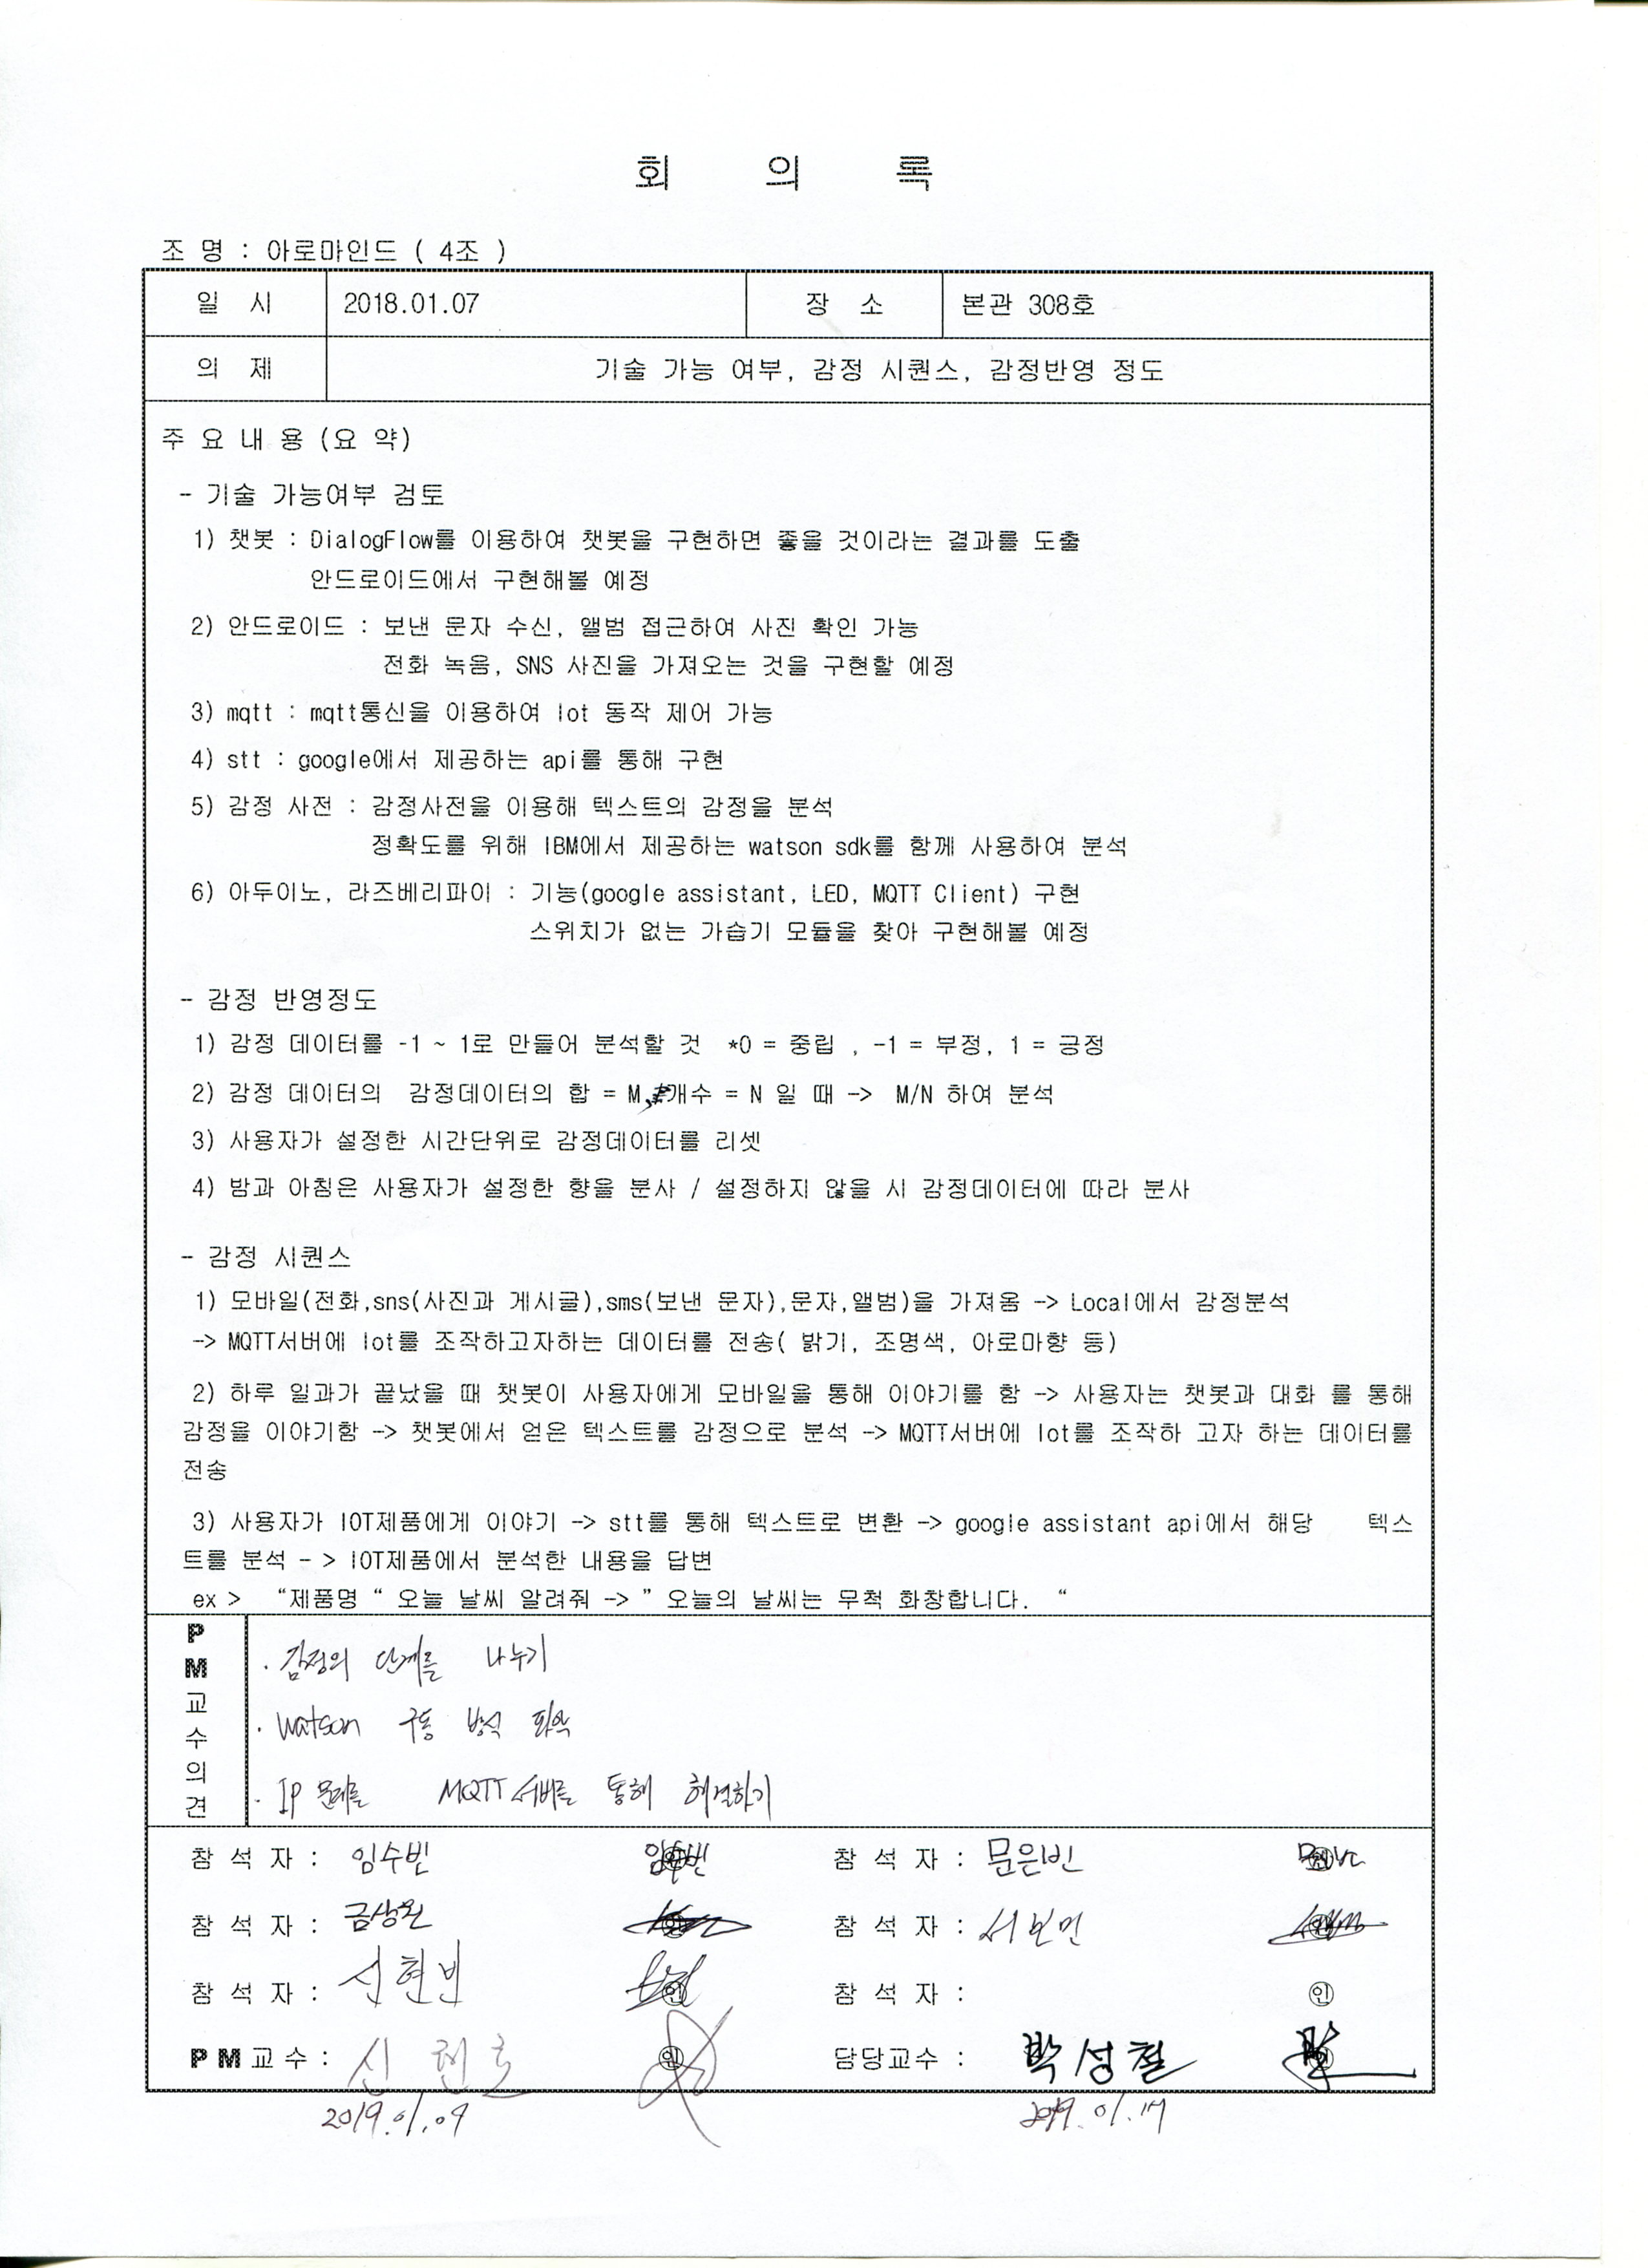 회 의 록
조 명 : 아로마인드 ( 4조 )
일 시 2018.01.07 장 소 본관 308호
의 제 기술 가능 여부, 감정 시퀀스, 감정반영 정도
주 요 내 용 (요 약)
- 기술 가능여부 검토
1) 챗봇 : DialogFlow를 이용하여 챗봇을 구현하면 좋을 것이라는 결과를 도출
안드로이드에서 구현해볼 예정
2) 안드로이드 : 보낸 문자 수신, 앨범 접근하여 사진 확인 가능
전화 녹음, SNS 사진을 가져오는 것을 구현할 예정
3) mqtt : mqtt통신을 이용하여 Iot 동작 제어 가능
4) stt : google에서 제공하는 api를 통해 구현
5) 감정 사전 : 감정사전을 이용해 텍스트의 감정을 분석
정확도를 위해 IBM에서 제공하는 watson sdk를 함께 사용하여 분석
6) 아두이노, 라즈베리파이 : 기능(google assistant, LED, MQTT Client) 구현
스위치가 없는 가습기 모듈을 찾아 구현해볼 예정
- 감정 반영정도
1) 감정 데이터를 -1 ~ 1로 만들어 분석할 것 *0 = 중립 , -1 = 부정, 1 = 긍정
2) 감정 데이터의 감정데이터의 합 = M, 개수 = N 일 때 -> M/N 하여 분석
3) 사용자가 설정한 시간단위로 감정데이터를 리셋
4) 밤과 아침은 사용자가 설정한 향을 분사 / 설정하지 않을 시 감정데이터에 따라 분사
- 감정 시퀀스
1) 모바일(전화,sns(사진과 게시글),sms(보낸 문자),문자,앨범)을 가져옴 -> Local에서 감정분석
-> MQTT서버에 Iot를 조작하고자하는 데이터를 전송( 밝기, 조명색, 아로마향 등)
2) 하루 일과가 끝났을 때 챗봇이 사용자에게 모바일을 통해 이야기를 함 -> 사용자는 챗봇과 대화 를 통해
감정을 이야기함 -> 챗봇에서 얻은 텍스트를 감정으로 분석 -> MQTT서버에 Iot를 조작하 고자 하는 데이터를
전송
3) 사용자가 IOT제품에게 이야기 -> stt를 통해 텍스트로 변환 -> google assistant api에서 해당 텍스
트를 분석 - > IOT제품에서 분석한 내용을 답변
ex > “제품명 “ 오늘 날씨 알려줘 -> ” 오늘의 날씨는 무척 화창합니다. “
PM교수의견
· 감정의 단계를 나누기
· Watson 구동 방식 파악
· IP 문제를 MQTT 서버를 통해 해결하기
참 석 자 : 임수빈 임수빈 참 석 자 : 문은빈
참 석 자 : 금상원 참 석 자 : 서보민
참 석 자 : 신현빈 참 석 자 : 인
PM교수 : 신현호 인 담당교수 : 박성철
2019.01.09 2019.01.17